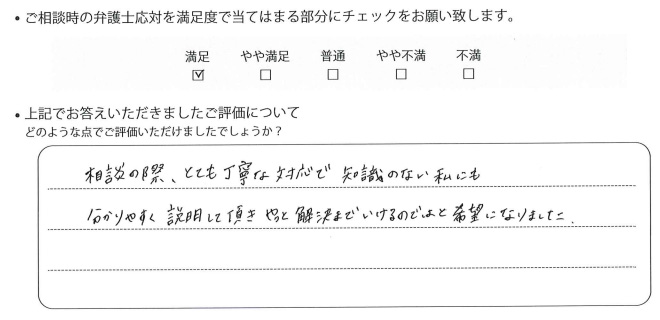 ・ご相談時の弁護士応対を満足度で当てはまる部分にチェックをお願い致します。
満足 やや満足 普通 やや不満 不満
☑ □ □ □ □
・上記でお答えいただきましたご評価について
どのような点でご評価いただけましたでしょうか？
相談の際、とても丁寧な対応で 知識のない私にも
分かりやすく説明して頂き やっと解決までいけるのではと希望になりました.